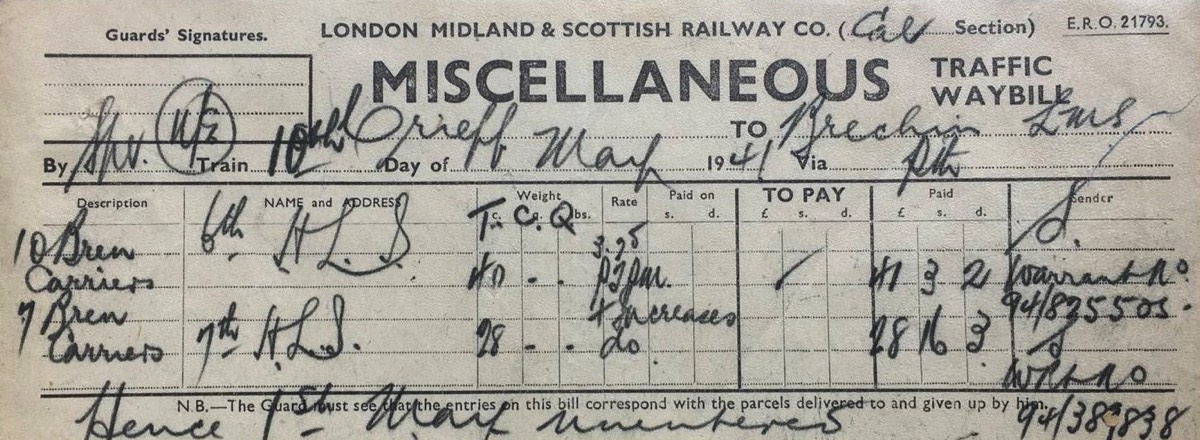 Guards' Signatures. LONDON MIDLAND & SCOTTISH RAILWAY CO. (Cal Section) E.R.O. 21793.
MISCELLANEOUS TRAFFIC WAYBILL
Crieff TO Brechin LMS
By Spl. Train 10th Day of May 1941 Via Pth
Description NAME and ADDRESS Weight Rate Paid on TO PAY Paid Sender
T. C. Q. lbs. s. d. £ s. d. £ s. d.
10 Bren 6th H L I 3.25 S.
Carriers 40 - - 41 3 2 Warrant No
7 Bren + Increases 94/835505.
Carriers 7th H L I. 28 - - do. 28 16 3 S
Wrt No
N.B.—The Guard must see that the entries on this bill correspond with the parcels delivered to and given up by him.
Hence 1st May 94/387838